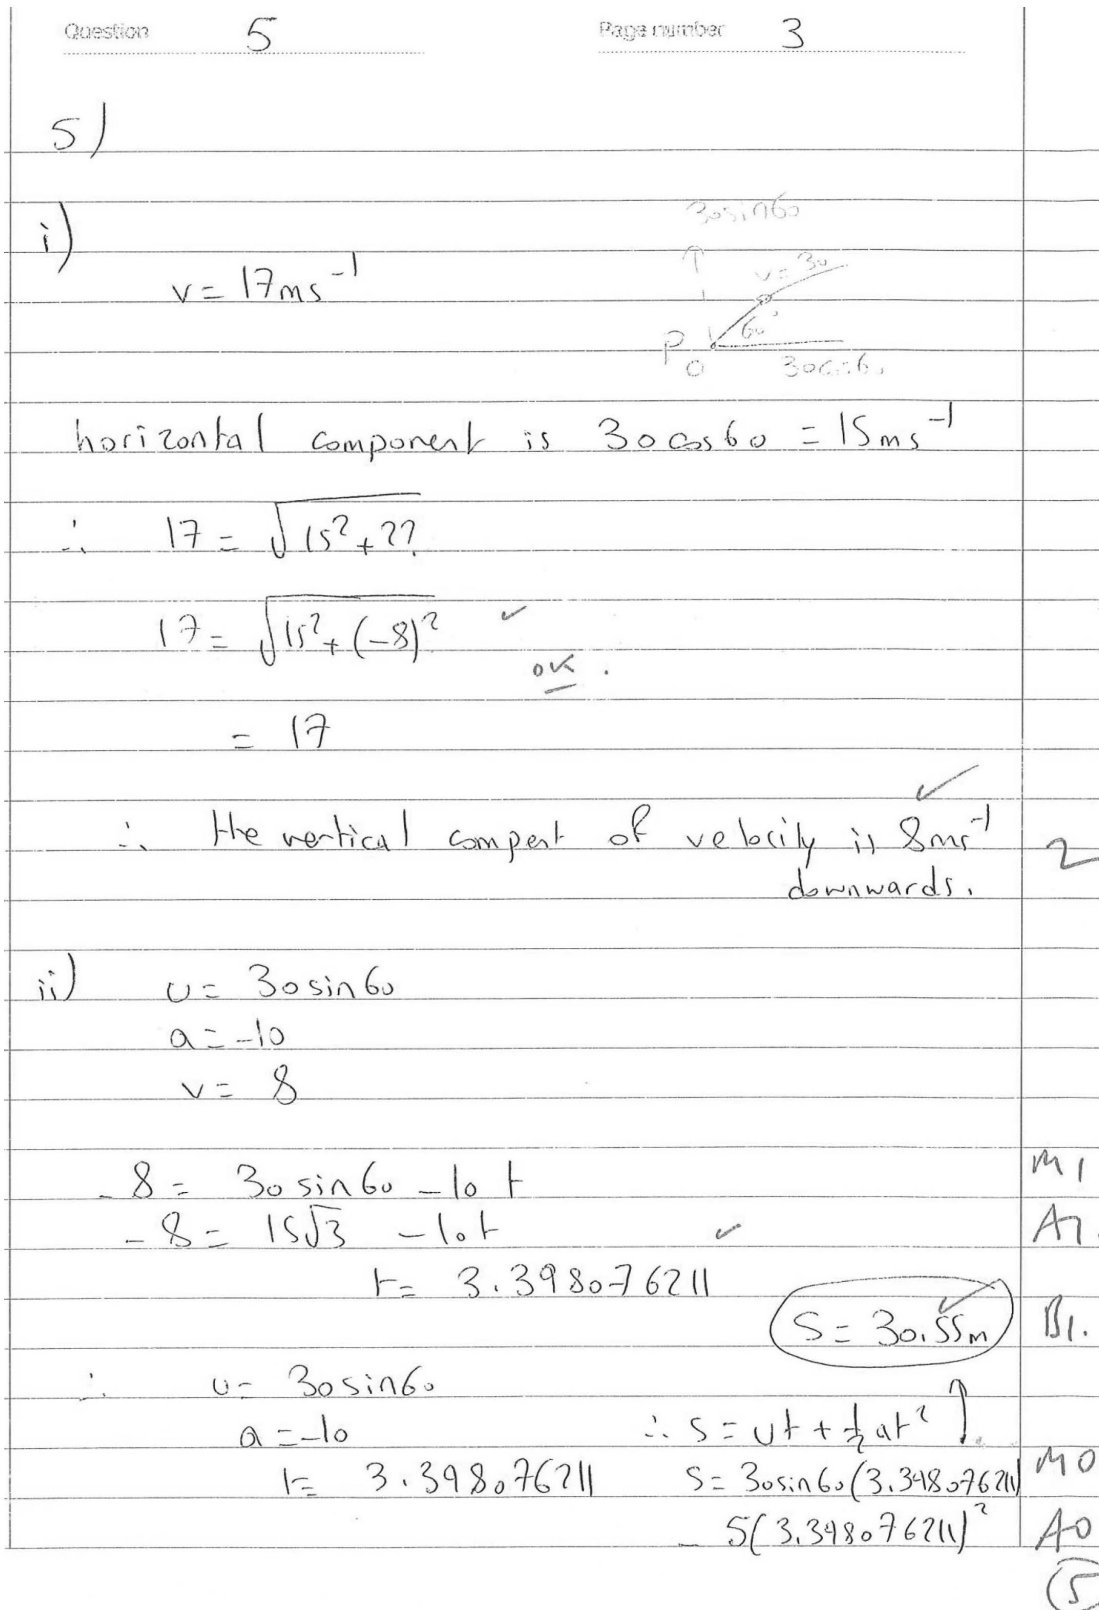 Question 5 Page number 3
5)
i)
30sin60
v = 17ms⁻¹
v = 30
60°
P
O
30cos60
horizontal component is 30cos60 = 15ms⁻¹
∴ 17 = √(15² + ??
17 = √(15² + (-8)² ✓
OK.
= 17
✓
∴ the vertical compent of velocity is 8ms⁻¹ 2
downwards.
ii) u = 30sin60
a = -10
v = 8
-8 = 30sin60 - 10t M1
-8 = 15√3 - 10t ✓ A1.
t = 3.398076211
S = 30.55m ✓ B1.
∴ u = 30sin60
a = -10 ∴ s = ut + ½at² ↑
t = 3.398076211 s = 30sin60(3.398076211) M0
- 5(3.398076211)² A0
5